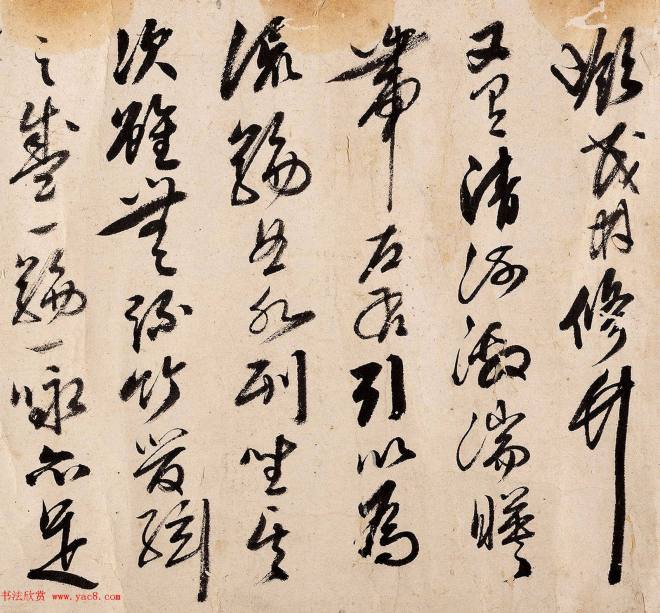 嶺茂林修竹
又有清流激湍暎
帶左右引以為
流觴曲水列坐其
次雖無絲竹管絃
之盛一觴一咏亦足
书法欣赏 www.yac8.com